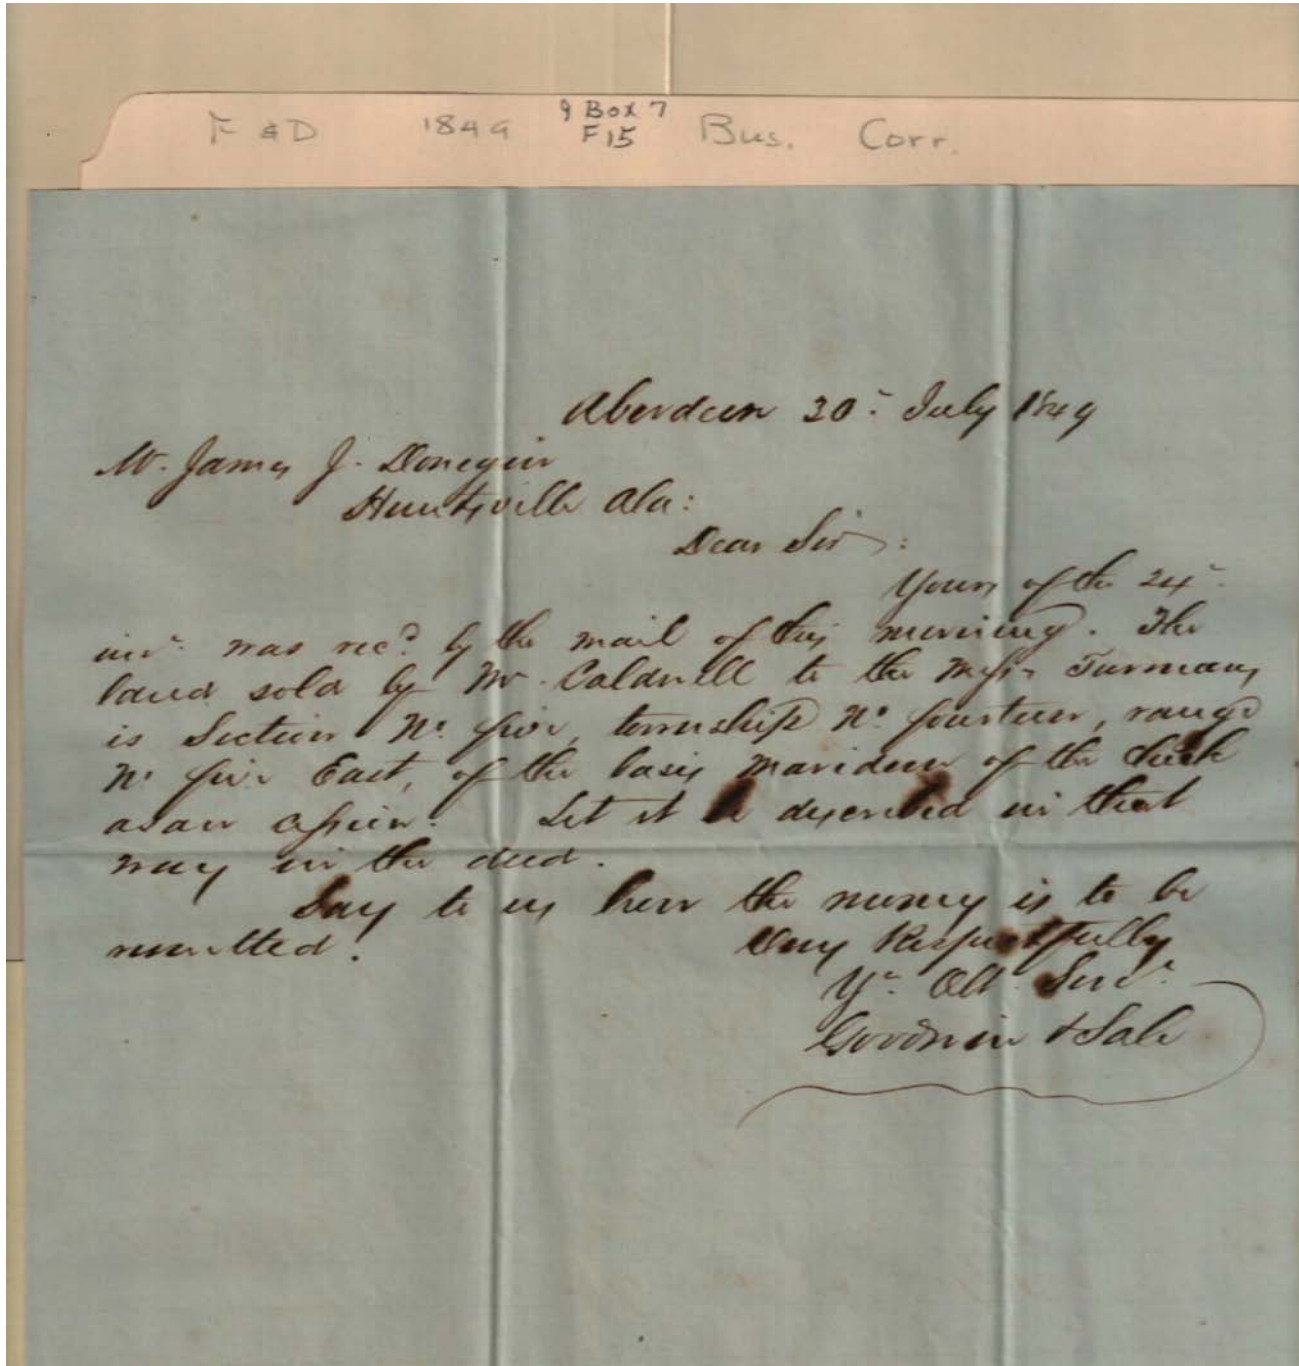 F & D 1849 9 Box 7 F15 Bus. Corr.
Aberdeen 30th July 1849
Mr. James J. Donegin
Huntsville Ala:
Dear Sir:
Yours of the 24th
inst. was recd. by the mail of this morning. The
land sold by Mr. Caldwell to the Messrs Turmans
is Section No. five, township No. fourteen, range
No. five East, of the basis maridean of the Chick
asaw cession. Let it be described in that
way in the deed.
Say to us how the money is to be
remitted.
Very Respectfully
Yr. Obt. Servt.
Goodwin & Sale